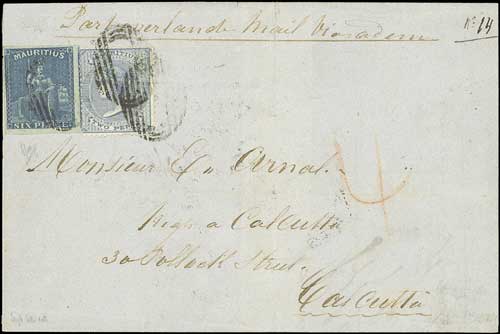 Par overland Mail via aden
No 14
MAURITIUS
SIX PENCE
TWO PENCE
4
Monsieur E. Arnal.
Négt a Calcutta
30 Pollock Street.
Calcutta